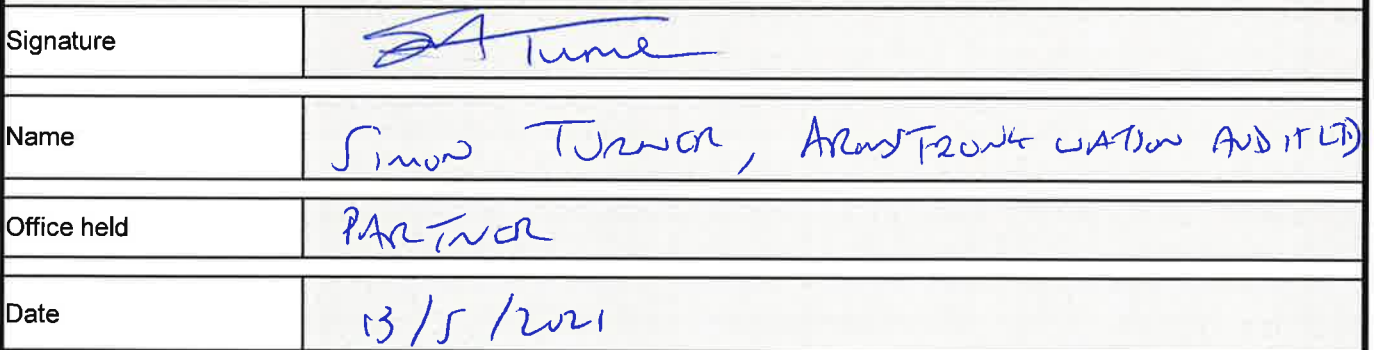 Signature SA Turner
Name SIMON TURNER, ARMSTRONG WATSON AUDIT LTD
Office held PARTNER
Date 13/5/2021